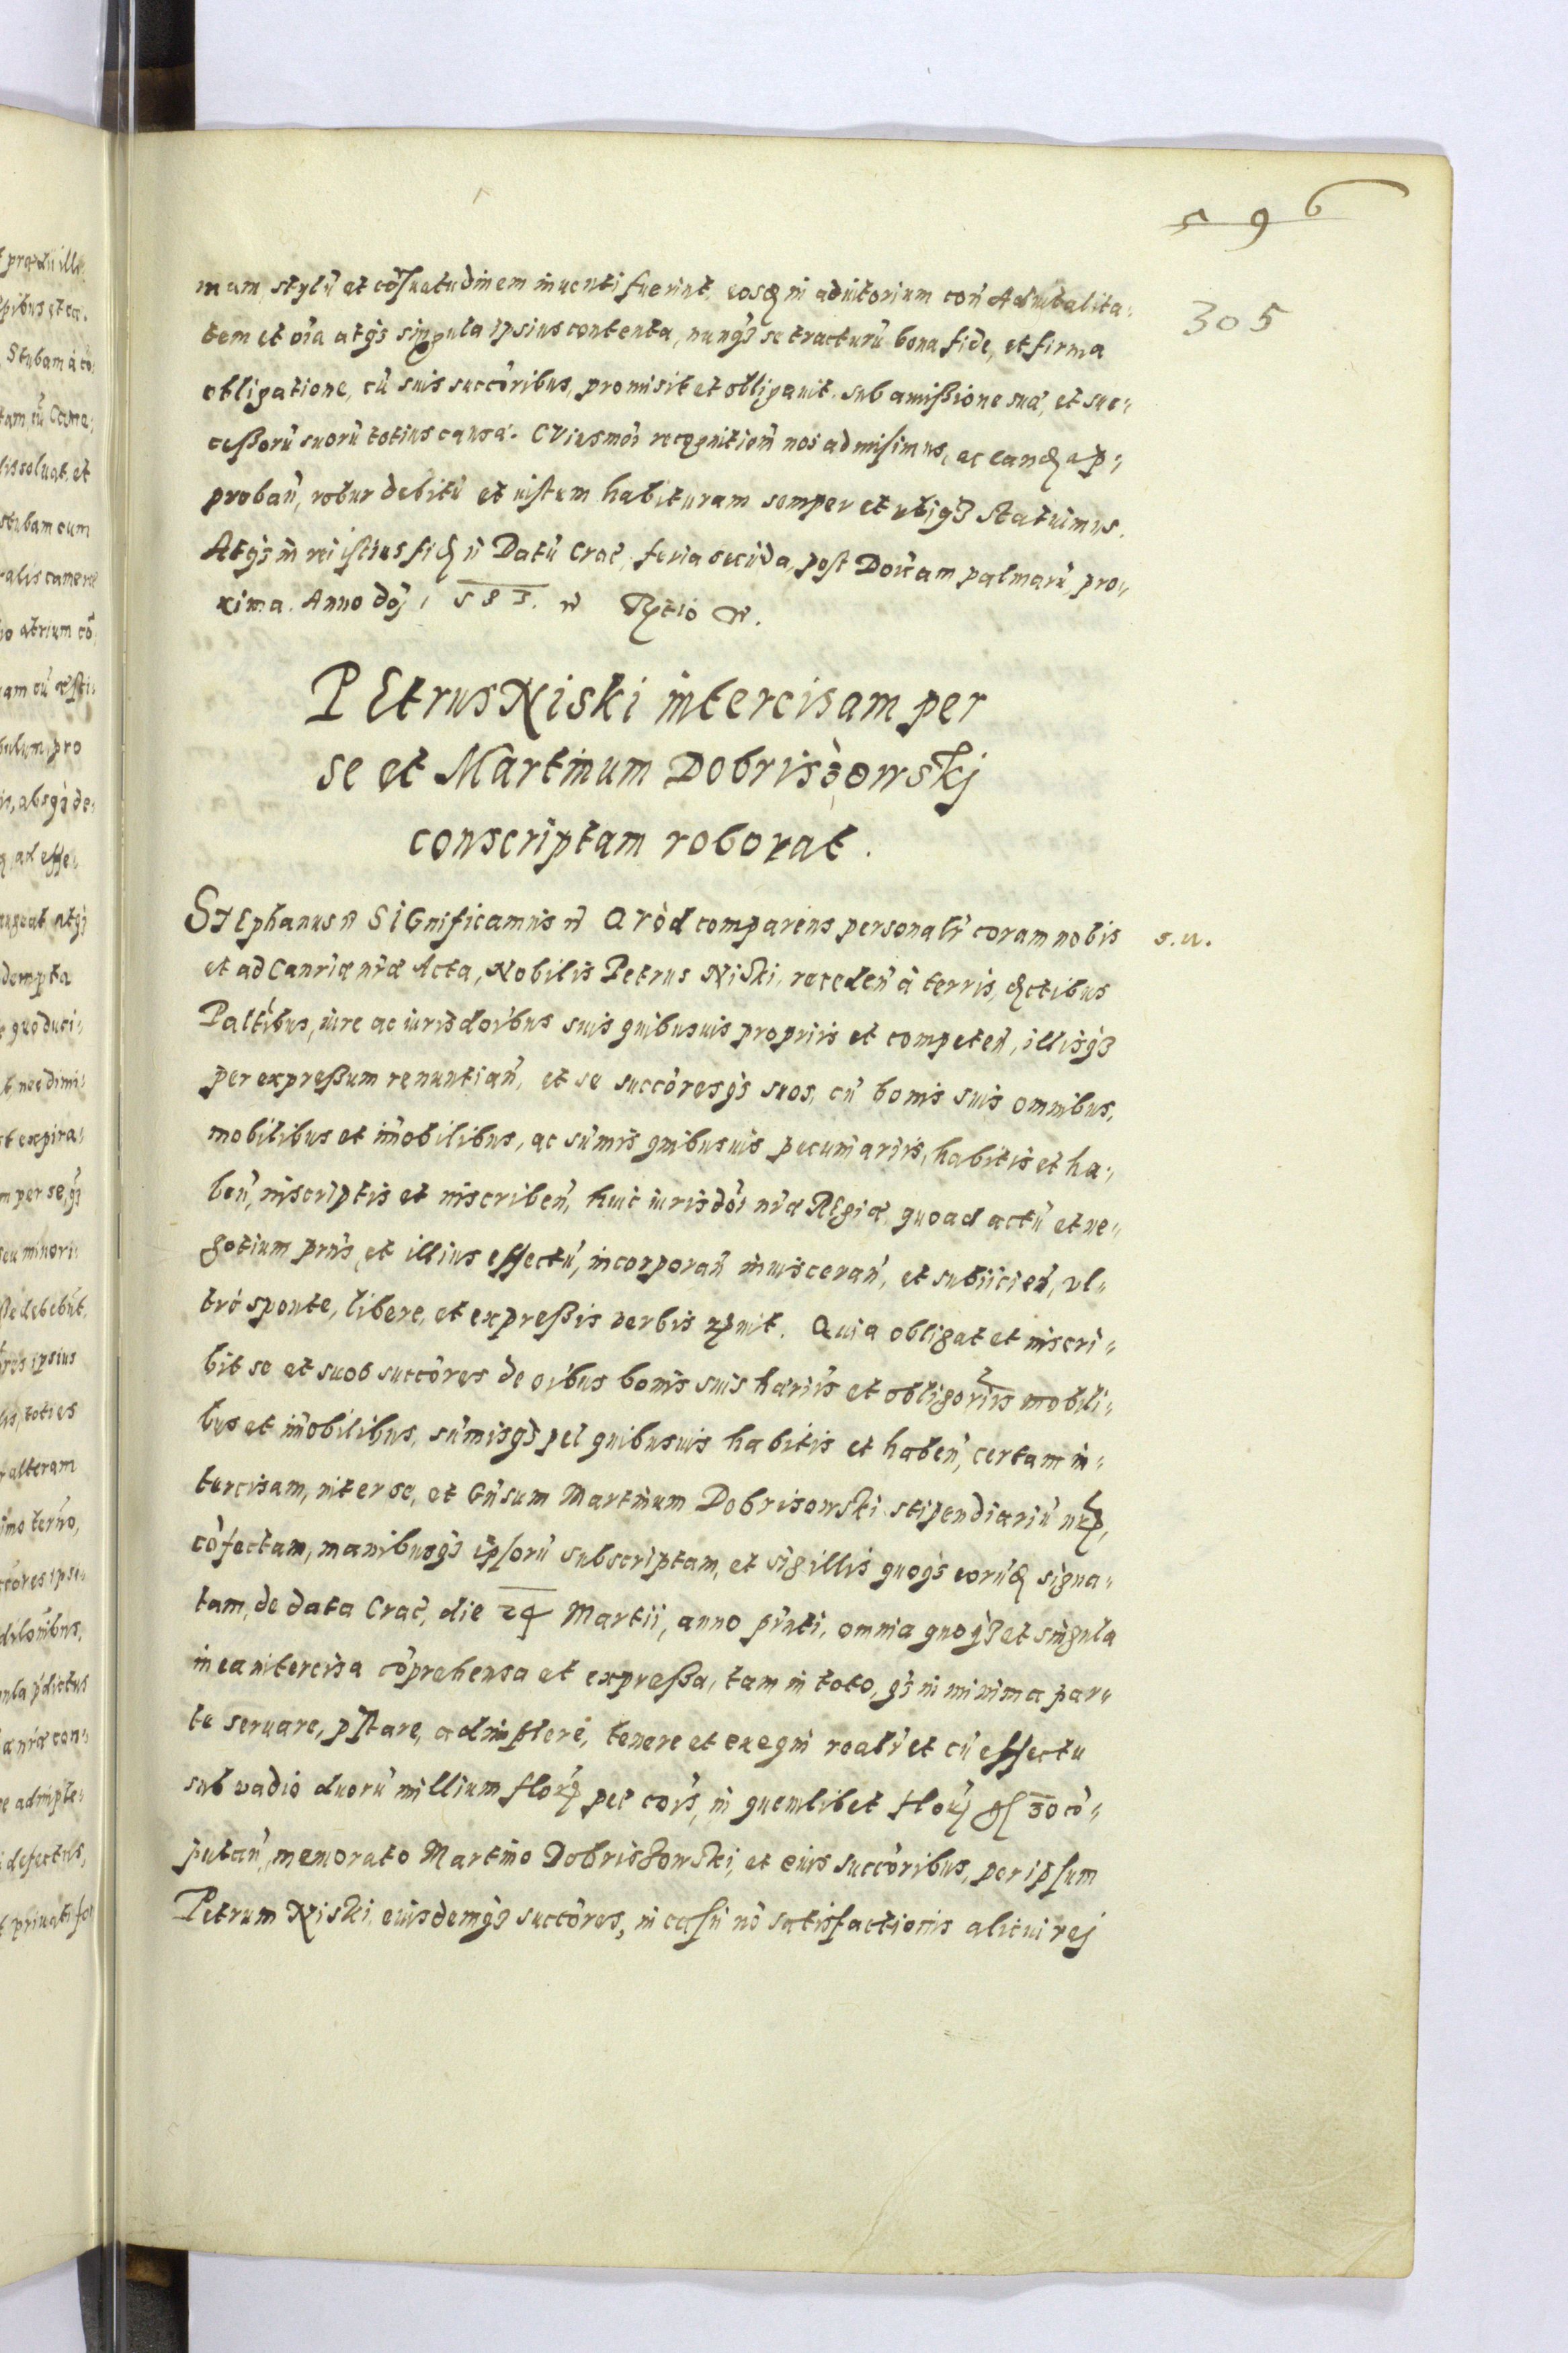 596
305
mam, stylũ et cõsuetudinem inuenti fuerint, eosq in adiutorium con Aduitalita-
tem et oĩa atqȝ singula ipsius contenta, nunqȝ se tracturũ bona fide, et firma
obligatione, cũ suis succõribus, promisit et obligauit, sub amißione sua, et suc-
ceßorũ suorũ totius causæ. CViusmõi recognitionẽ nos admisimus, ac eandq ap-
probañ, robur debitũ et iustum habituram semper et vbiqȝ statuimus.
Atqȝ in rei istius fidq ñ Datũ Crac̃, feria secũda, post Doñcam palmarũ, pro-
xima. Anno doj 1583. ñ
PEtrus Niski intercisam per
se et Martinum Dobrisȝowskj
conscriptam roborat.
STEphanus ñ SIGnificamus ñ QVòd comparens personalr̃ coram nobis
s. u.
et ad Canr̃iæ nr̃æ Acta, Nobilis Petrus Niski, recedeñ à terris, dictibus
Paltĩbus, iure ac iurisdõibus suis quibusuis propriis et competeñ, illisqȝ
per expreßum renuntiañ, et se succõresqȝ suos, cũ bonis suis omnibus,
mobilibus et im̃obilibus, ac sum̃is quibusuis pecuniariis, habitis et ha-
beñ, inscriptis et inscribeñ, huic iurisdõi nr̃æ REgiæ, quoad actũ et ne-
gotium prñs, et illius effectũ, incorporañ inuisceran̄, et subiicieñ, vl-
trò sponte, libere, et expreßis verbis rec̃nuit. Quia obligat et inscri-
bit se et suos succõres de oĩbus bonis suis hæriis et obligoriis mobili-
bus et im̃obilibus, sum̃isqȝ pec̃ quibusuis habitis et habeñ, certam in-
tercisam, inter se, et Gñsum Martinum Dobrisowski stipendiariũ nr̃,
cõfectam, manibusqȝ ipsorũ subscriptam, et sigillis quoqȝ eorũdq signa-
tam, de data Crac̃, die 24 Martii, anno pñti, omnia quoqȝ et singula
in ea intercisa cõprehensa et expreßa, tam in toto, qȝ in minima par-
te seruare, pr̃stare, adimplere, tenere et exequi realr̃ et cũ effectu
sub vadio duorũ millium flor̃ pec̃ coĩs, in quemlibet flor̃ gr̃ 30 cõ-
putañ, memorato Martino Dobrisȝowski, et eius succõribus, per ipsum
Petrum Niski, eiusdemqȝ succõres, in casu nõ satisfactionis alicui rej